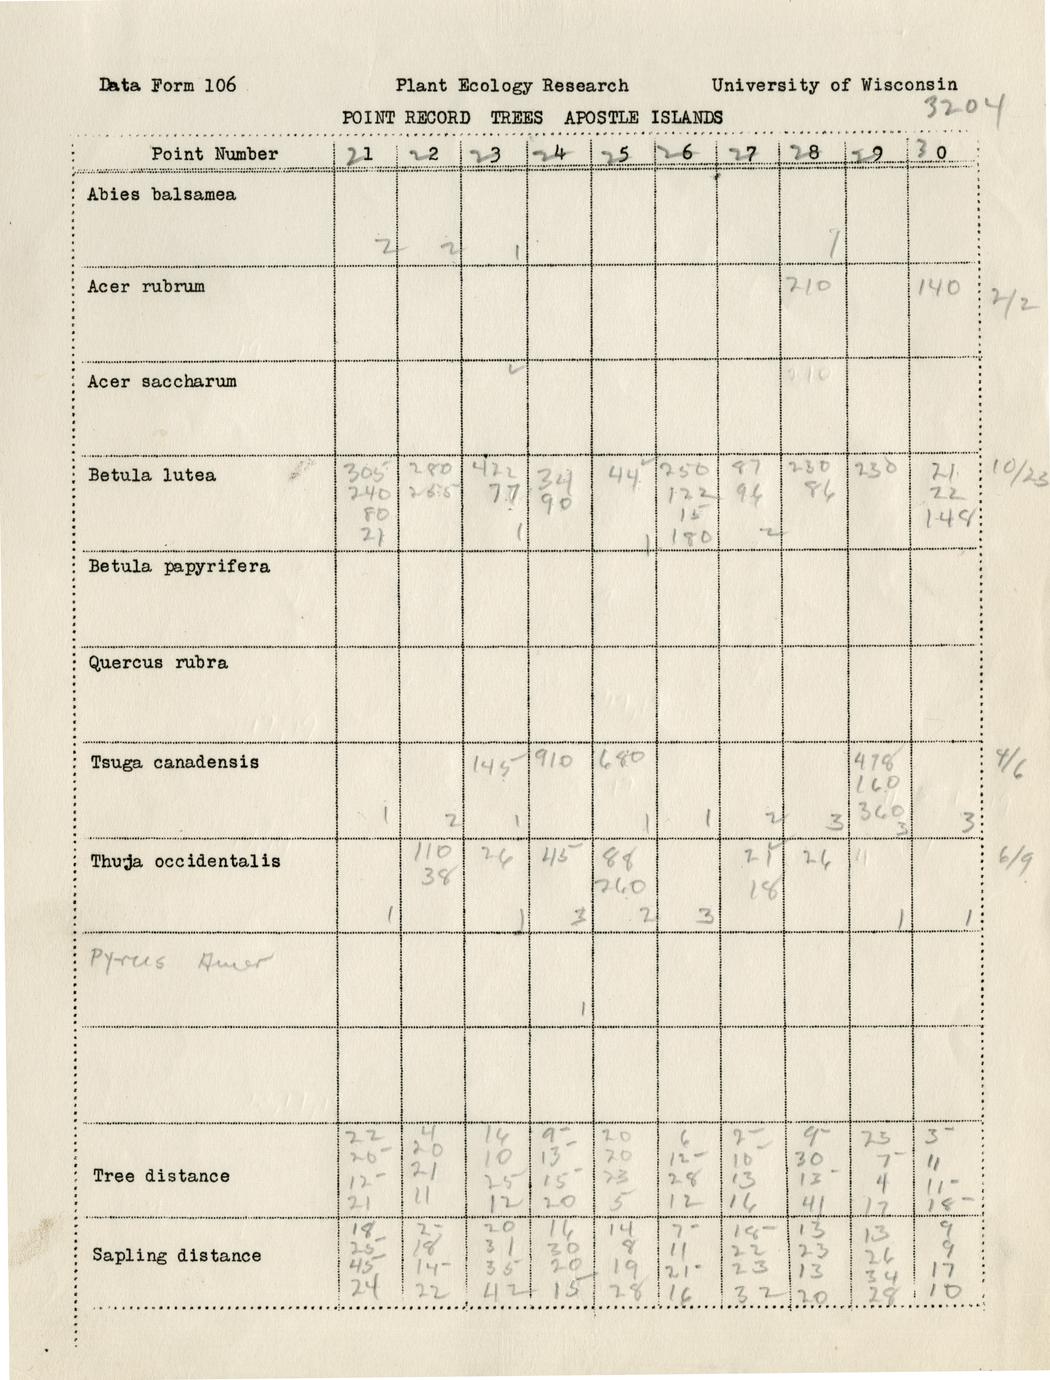 Data Form 106 Plant Ecology Research University of Wisconsin
3204
POINT RECORD TREES APOSTLE ISLANDS
Point Number 21 22 23 24 25 26 27 28 29 30
Abies balsamea
2 2 1
Acer rubrum 210 140 2/2
Acer saccharum
Betula lutea 305 280 422 44 250 87 230 230 21 10/23
240 265 77 90 122 94 86 22
80 15 148
21 1 1 180 2
Betula papyrifera
Quercus rubra
Tsuga canadensis 145 910 680 478 4/6
160
1 2 1 1 1 2 3 360 3 3
Thuja occidentalis 110 26 45 88 21 26 6/9
38 260 18
1 1 3 2 3 1 1
Pyrus Amer
1
22 4 16 9 20 6 9 23 3
20 20 10 13 20 12 10 30 7 11
Tree distance 12 21 25 15 23 28 13 13 4 11
21 11 12 20 5 12 16 41 17 18
18 2 20 16 14 7 18 13 13 9
Sapling distance 25 18 31 30 8 11 22 23 26 9
45 14 35 20 19 21 23 13 34 17
24 22 42 15 28 16 32 20 28 10